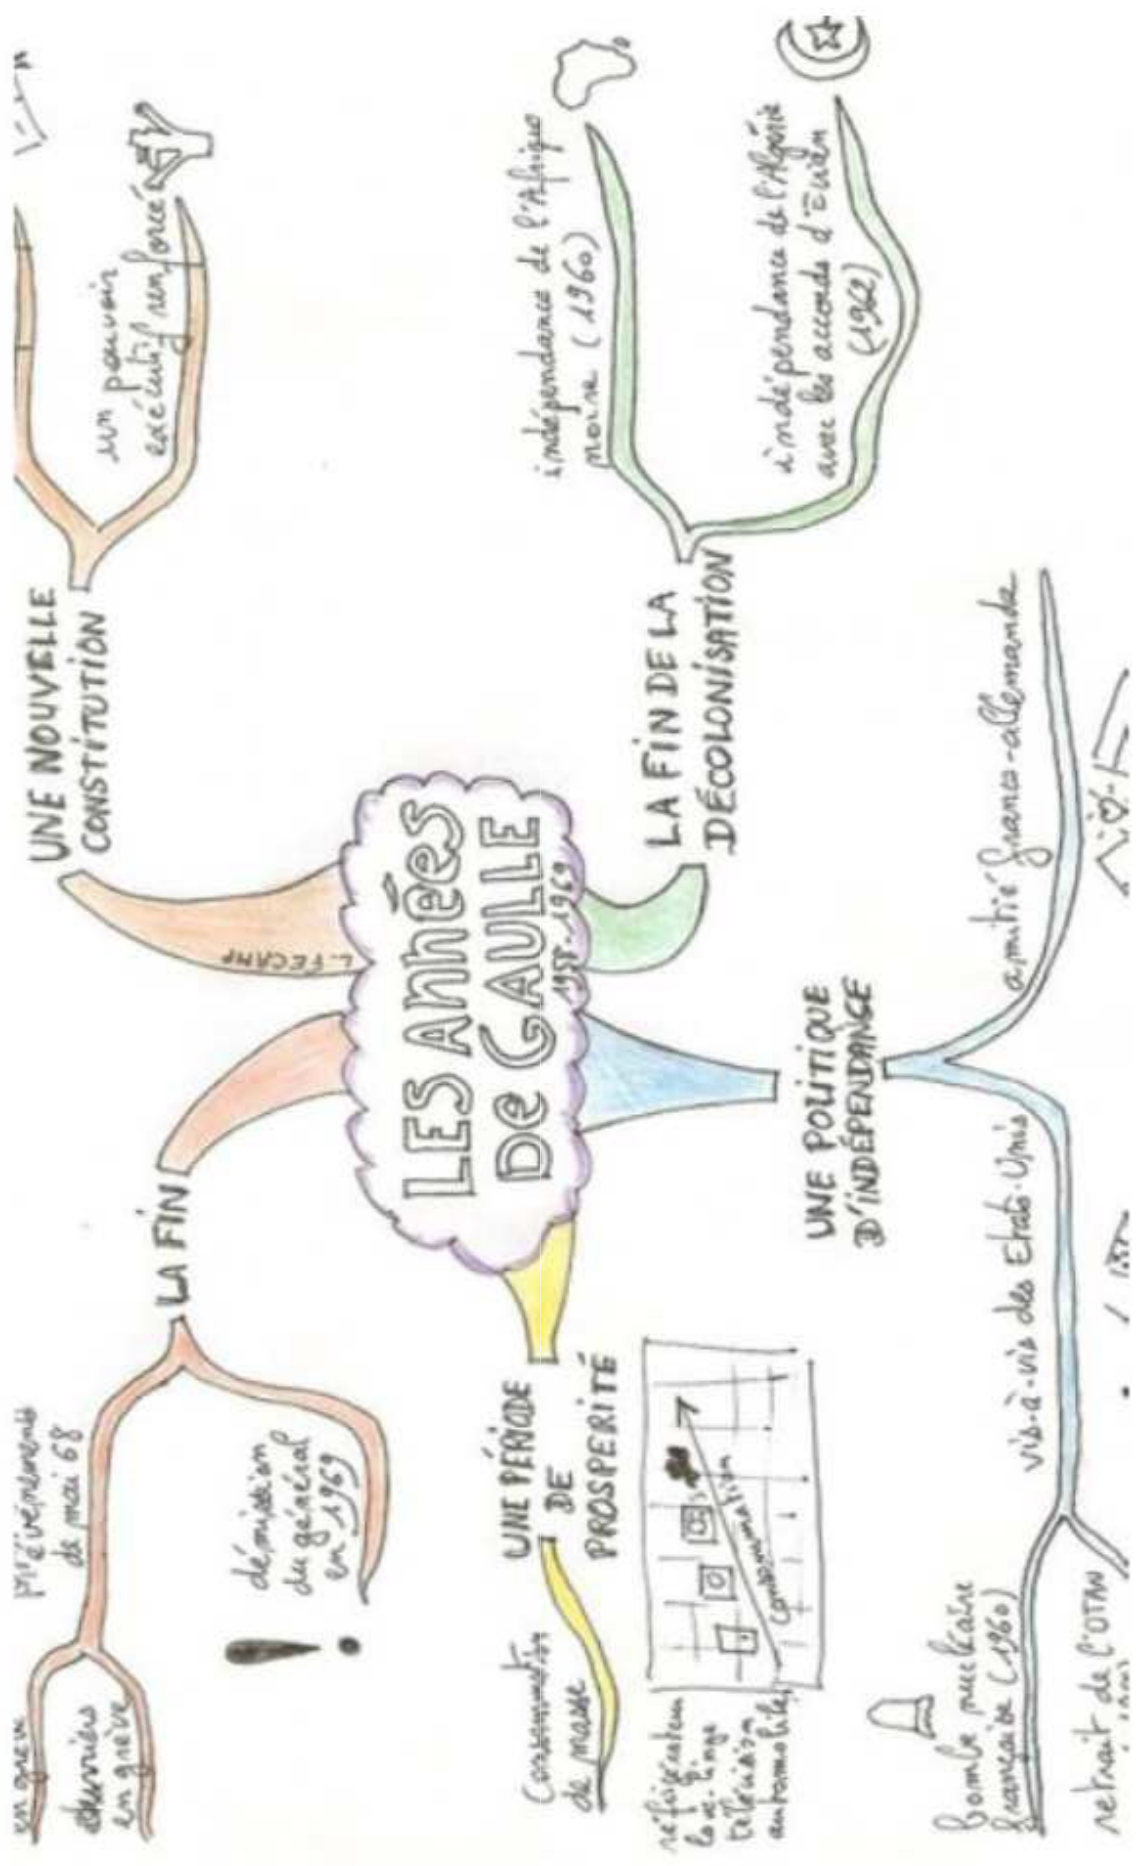 LES AnnéeS
De GAULLE
1958-1969
L. FECAMP
UNE NOUVELLE
CONSTITUTION
un pouvoir
exécutif renforcé
LA FIN DE LA
DÉCOLONISATION
indépendance de l'Afrique
noire (1960)
indépendance de l'Algérie
avec les accords d'Evian
(1962)
UNE POLITIQUE
D'INDÉPENDANCE
amitié franco-allemande
vis-à-vis des Etats-Unis
bombe nucléaire
française (1960)
retrait de l'OTAN
UNE PÉRIODE
DE
PROSPERITÉ
Consommation
de masse
réfrigérateur
lave-linge
télévision
automobile
consommation
LA FIN
événements
de mai 68
en grève
ouvriers
en grève
démission
du général
en 1969
!